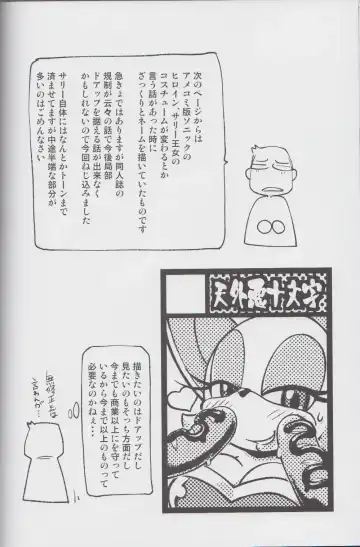 次のページからは
アメコミ版ソニックの
ヒロイン、サリー王女の
コスチュームが変わるとか
言う話があった時に
ざっくりとネームを描いていたものです
急きょではありますが同人誌の
規制が云々の話で今後局部
ドアップを据える話が出来なく
かもしれないので今回ねじ込みました
サリー自体にはなんとかトーンまで
済ませてますが中途半端な部分が
多いのはごめんなさい
天外悪十文字
描きたいのはドアップだし
見たいのもそっち方面だし
今までも商業以上にを守って
いるから今まで以上のものって
必要なのかねぇ…
無修正とは
言わんが…